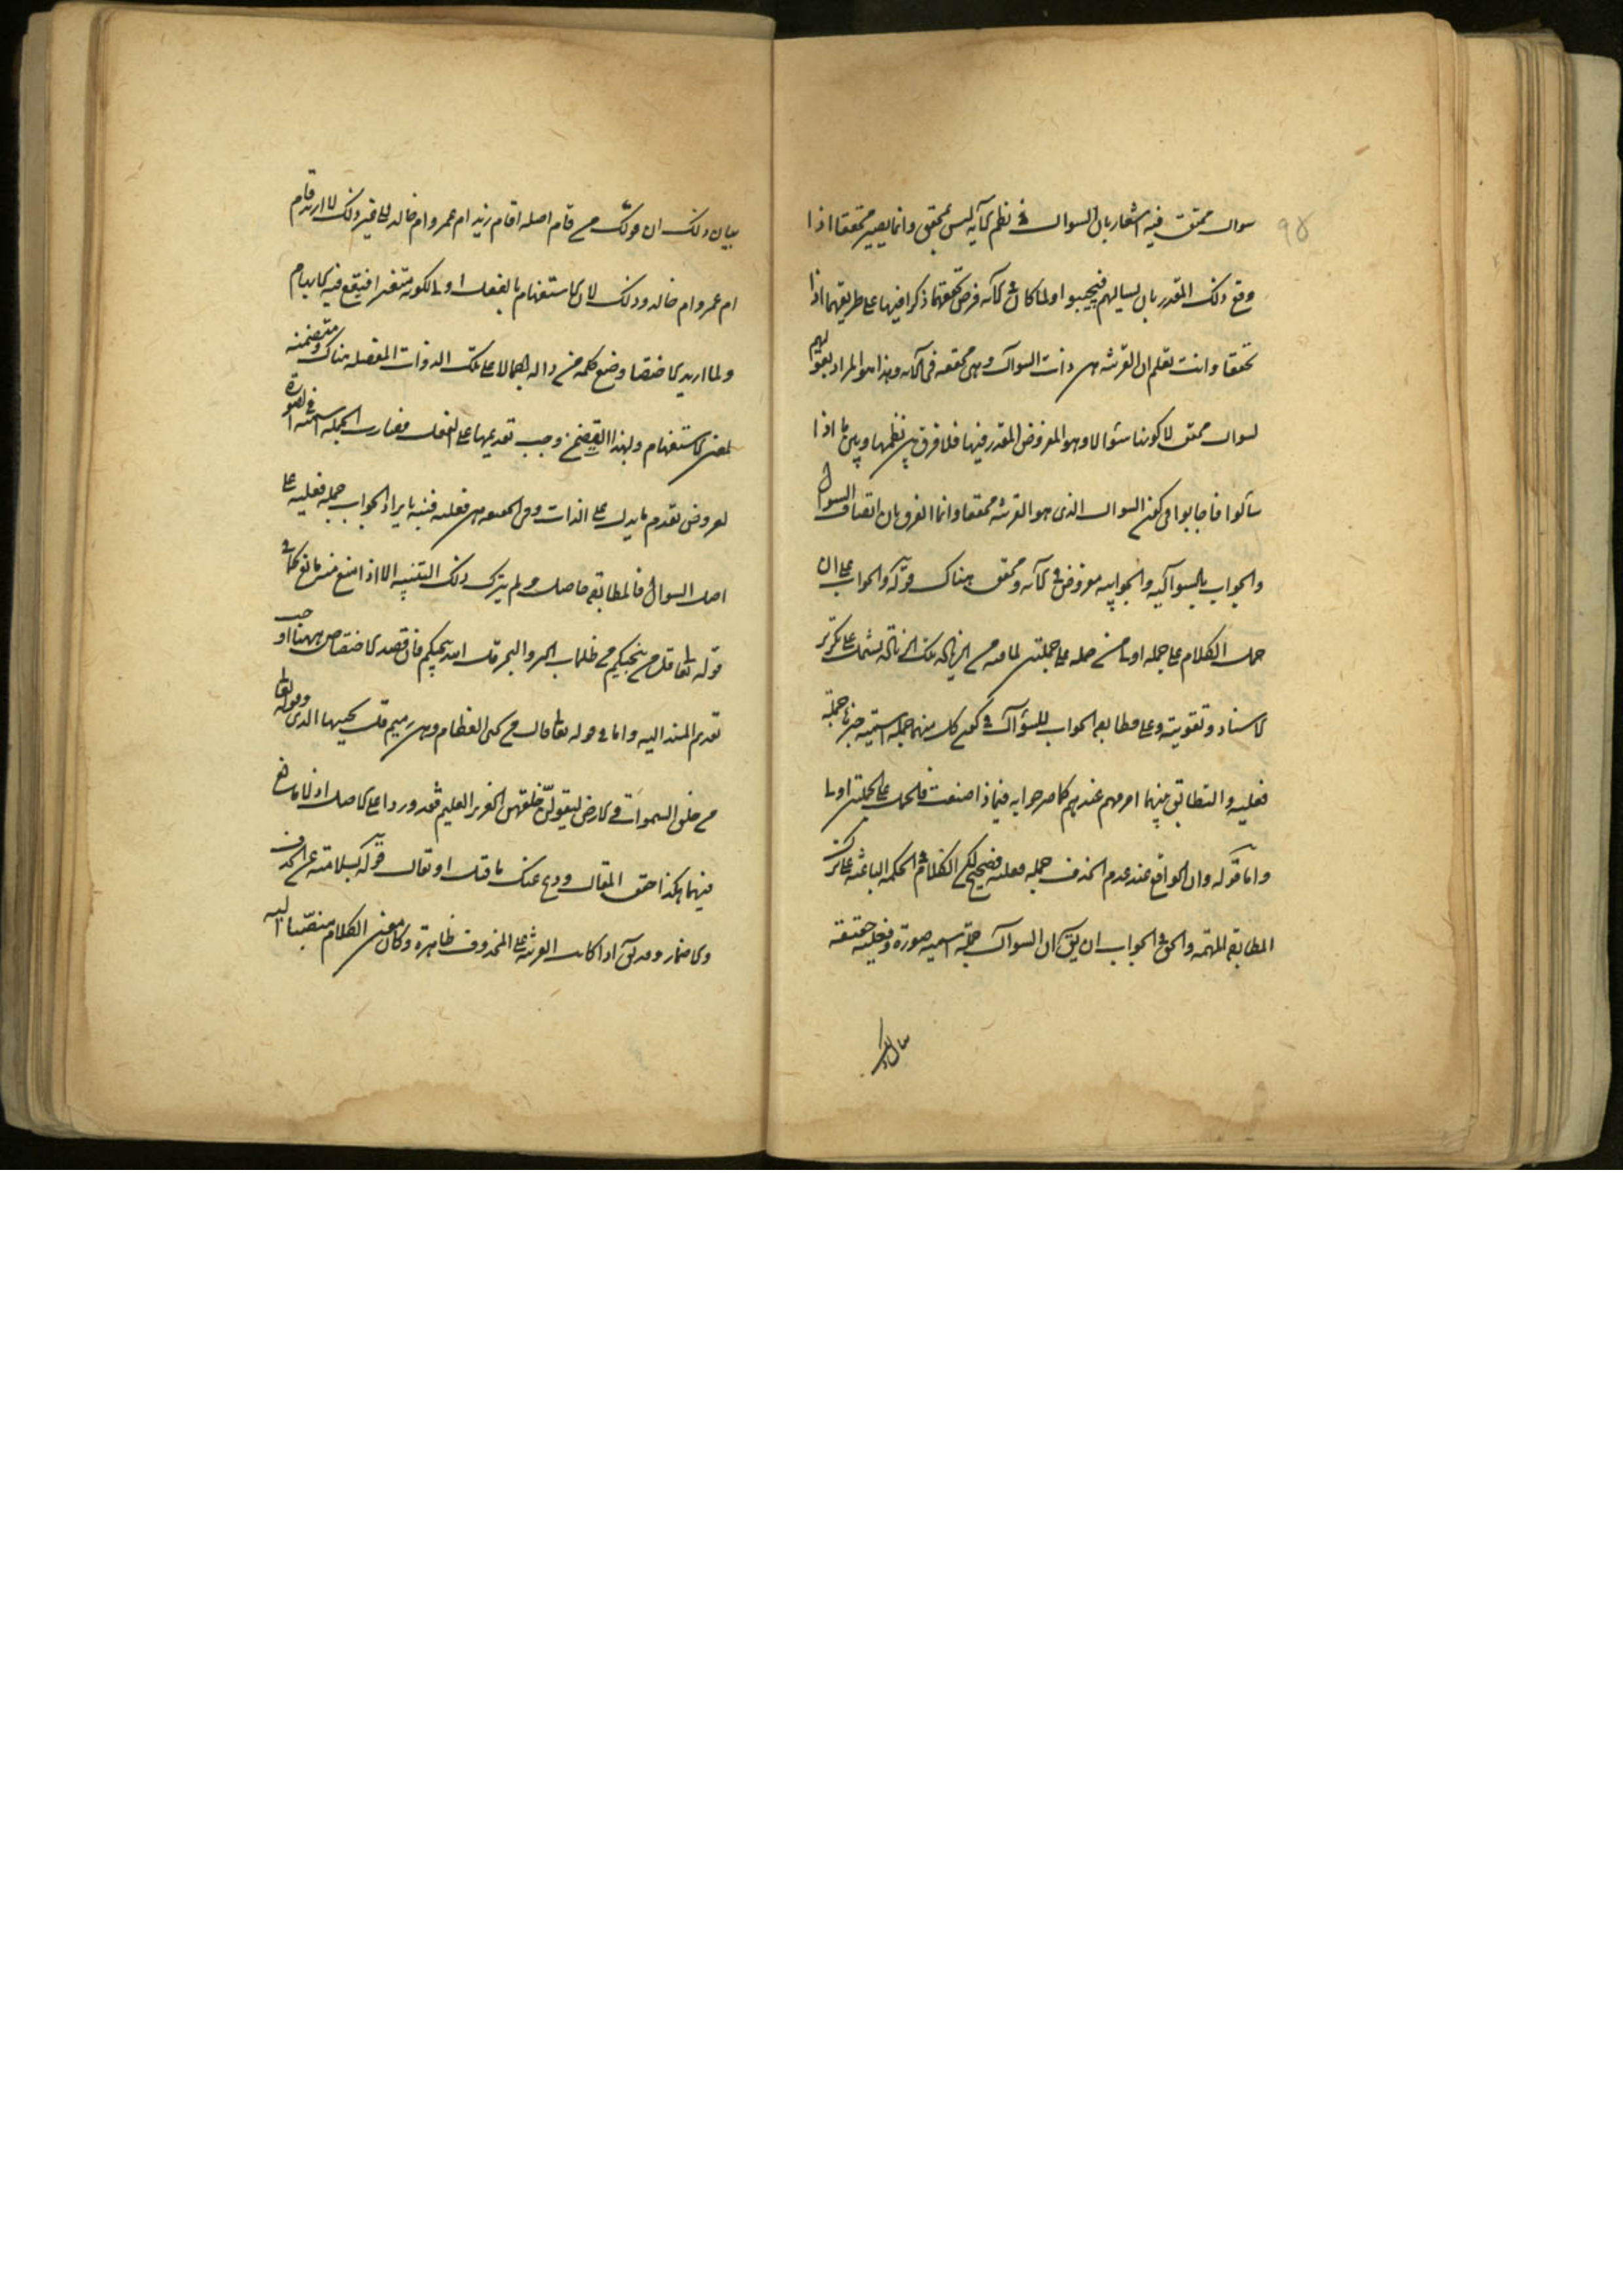 سوال محقق فيه اشعار بان السوال في نظم الآية ليس بمحقق وانما يصير محققا اذا
وقع ذلك المقدر بان يسالهم فيجيبوا ولما كان في الآية فرض تحققهما ذكرا فيها على طريقهما اذا
تحققا وانت تعلم ان القرينة هي ذات السوال وهي محققة في الآية وهذا هو المراد بقولهم
لسوال محقق لا كونها سؤالا وهو المفروض المقدر فيها فلا فرق بين نظمها وبين ما اذا
سألوا فاجابوا في كون السوال الذي هو القرينة محققا وانما الفرق بان اتصاف السوال
والجواب بالسوالية والجوابية مفروض في الآية ومحقق هناك قوله والجواب على ان
حمل الكلام على جملة اولى من حمله على جملتين لما فيه من الزيادة تلك الزيادة تشتمل على تكرير
الاسناد وتقويته وعلى مطابقة الجواب للسؤال في كون كل منهما جملة اسمية خبرها جملة
فعلية والتطابق بينهما امر مهم عندهم كما صرحوا به فيماذا صنعت فالحمل على الجملتين اولى
واما قوله وان الواقع عند عدم الحذف جملة فعلية فصحيح لكن الكلام في الحكمة الباعثة على ترك
المطابقة المهمة والحق في الجواب ان يق ان السوال جملة اسمية صورة وفعلية حقيقة
بيان ذلك
بيان ذلك ان قولك من قام اصله اقام زيد ام عمرو ام خالد الى غير ذلك لا ازيد قام
ام عمرو ام خالد وذلك لان الاستفهام بالفعل اولى لكونه متغيرا فيقع فيه الابهام
ولما اريد الاختصار وضع كلمة من دالة اجمالا على تلك الذوات المفصلة هناك ومتضمنة
لمعنى الاستفهام ولهذا التضمن وجب تقديمها على الفعل فصارت الجملة اسمية في الصورة
لعروض تقدم ما يدل على الذات وفي الحقيقة هي فعلية فنبه بايراد الجواب جملة فعلية على
اصل السوال فالمطابقة حاصلة ولم يترك ذلك التنبيه الا اذا منع منه مانع كما في
قوله تعالى قل من ينجيكم من ظلمات البر والبحر قل الله ينجيكم فان قصد الاختصاص ههنا اوجب
تقديم المسند اليه واما في قوله تعالى قال من يحيى العظام وهي رميم قل يحييها الذي وقوله تعالى
من خلق السموات والارض ليقولن خلقهن العزيز العليم فقد وردا على الاصل اذ لا مانع
فيهما هكذا حقق المقال ودع عنك ما قيل او يقال قوله لسلامته عن الحذف
والاضمار وقد يق اذا كانت القرينة على المحذوف ظاهرة وكان معنى الكلام منصبا اليه